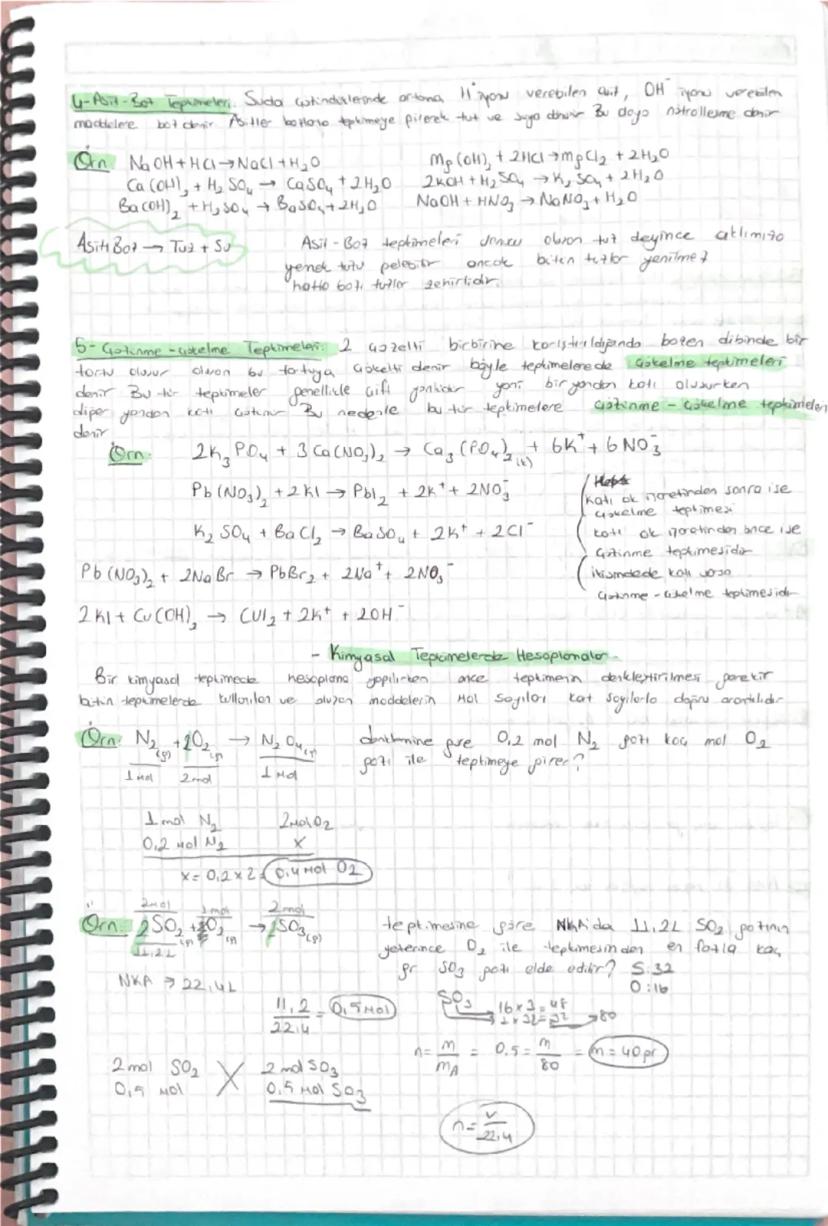 4-Asit-Baz Tepkimeleri: Suda çözündüklerinde ortama H⁺ iyonu verebilen asit, OH⁻ iyonu verebilen
maddelere baz denir Asitler bazlarla tepkimeye girerek tuz ve suya dönüşür Bu olaya nötrolleşme denir
Örn NaOH + HCl → NaCl + H₂O Mg(OH)₂ + 2HCl → MgCl₂ + 2H₂O
Ca(OH)₂ + H₂SO₄ → CaSO₄ + 2H₂O 2KOH + H₂SO₄ → K₂SO₄ + 2H₂O
Ba(OH)₂ + H₂SO₄ → BaSO₄ + 2H₂O NaOH + HNO₃ → NaNO₃ + H₂O
Asit+Baz → Tuz + Su Asit-Baz tepkimeleri ürünü olan tuz deyince aklımıza
yemek tuzu gelebilir ancak bütün tuzlar yenilmez
hatta bazı tuzlar zehirlidir.
5- Çözünme-Çökelme Tepkimeleri: 2 çözelti birbirine karıştırıldığında bazen dibinde bir
tortu oluşur oluşan bu tortuya çökelti denir böyle tepkimelerede çökelme tepkimeleri
denir Bu tür tepkimeler genellikle çift yönlüdür yani bir yandan katı oluşurken
diğer yandan katı çözünür Bu nedenle bu tür tepkimelere çözünme-çökelme tepkimeleri
denir
Örn: 2K₃PO₄ + 3Ca(NO₃)₂ → Ca₃(PO₄)₂(k) + 6K⁺ + 6NO₃⁻
Pb(NO₃)₂ + 2KI → PbI₂ + 2K⁺ + 2NO₃⁻
Katı ok işaretinden sonra ise
çökelme tepkimesi
K₂SO₄ + BaCl₂ → BaSO₄ + 2K⁺ + 2Cl⁻
katı ok işaretinden önce ise
çözünme tepkimesidir
Pb(NO₃)₂ + 2NaBr → PbBr₂ + 2Na⁺ + 2NO₃⁻
ikisindede katı varsa
çözünme-çökelme tepkimesidir
2KI + Cu(OH)₂ → CUI₂ + 2K⁺ + 2OH⁻
- Kimyasal Tepkimelerde Hesaplamalar -
Bir kimyasal tepkimede hesaplama yapılırken önce tepkimenin denkleştirilmesi gerekir
bütün tepkimelerde kullanılan ve oluşan maddelerin mol sayıları kat sayılarla doğru orantılıdır
Örn: N₂(g) + 2O₂(g) → N₂O₄(g) denklemine göre 0,2 mol N₂ gazı kaç mol O₂
1 mol 2 mol 1 mol gazı ile tepkimeye girer?
1 mol N₂ 2 mol O₂
0,2 mol N₂ x
x = 0,2 x 2 = 0,4 mol O₂
2 mol 1 mol 2 mol
Örn: 2SO₂(g) + O₂(g) → 2SO₃(g) tepkimesine göre NKA'da 11,2L SO₂ gazının
11,2L yeterince O₂ ile tepkimesinden en fazla kaç
gr SO₃ gazı elde edilir? S:32
O:16
NKA → 22,4L
11,2/22,4 = 0,5 mol
SO₃ 16 x 3 = 48
1 x 32 = 32 → 80
n = m/mA = 0.5 = m/80 = m = 40 gr
2 mol SO₂ 2 mol SO₃
0,5 mol 0,5 mol SO₃
n = v/22,4